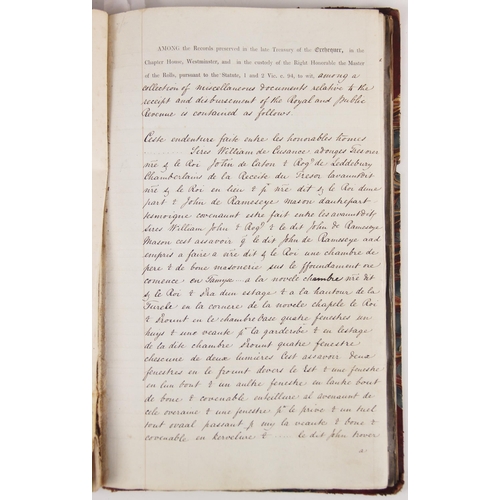 AMONG the Records preserved in the late Treasury of the Exchequer, in the
Chapter House, Westminster, and in the custody of the Right Honorable the Master
of the Rolls, pursuant to the Statute, 1 and 2 Vic. c. 94, to wit, among a
collection of miscellaneous documents relative to the
receipt and disbursement of the Royal and public
Revenue is contained as follows.
Ceste endenture faite entre les honorables hōmes
Sires William de Cusance adonqes Tresorer
nr̄e & le Roi John de Caton & Rog. de Leddebury
Chamberlains de la Receite du Tresor lavauntdit
nr̄e & le Roi en lieu & pr̄ nr̄e dit & le Roi dune
part & John de Ramesseye mason dautrepart
tesmoigne covenaunt estre fait entre les avauntdit
Sires William John & Rog. & le dit John de Ramseye
Mason cest assavoir q̄ le dit John de Ramseye aad
empris a faire a nr̄e dit & le Roi une chambre de
pere & de bone masonerie sus le ffoundament ore
comence on Tamyse a la novele chambre nr̄e dit
& le Roi & dun estage & a la hautour de la
en la cornere de la novele chapele le Roi
& en le chambre base quatre fenestres un
huys & une veaute pr̄ la garderobe & en lestage
de la dite chambre quatre fenestre
chescune de deux lumieres Cest assavoir deux
fenestres en le frount devers le Est & une fenestre
en lun bout & un aultre fenestre en lautre bout
de bone & covenable entailleure al avenaunt de
cele overaine & une fenestre pr̄ le prive & un tuel
tout ovaal passant p̄ my la veaute & bone &
covenable en kerveture & .... le dit John trover
a